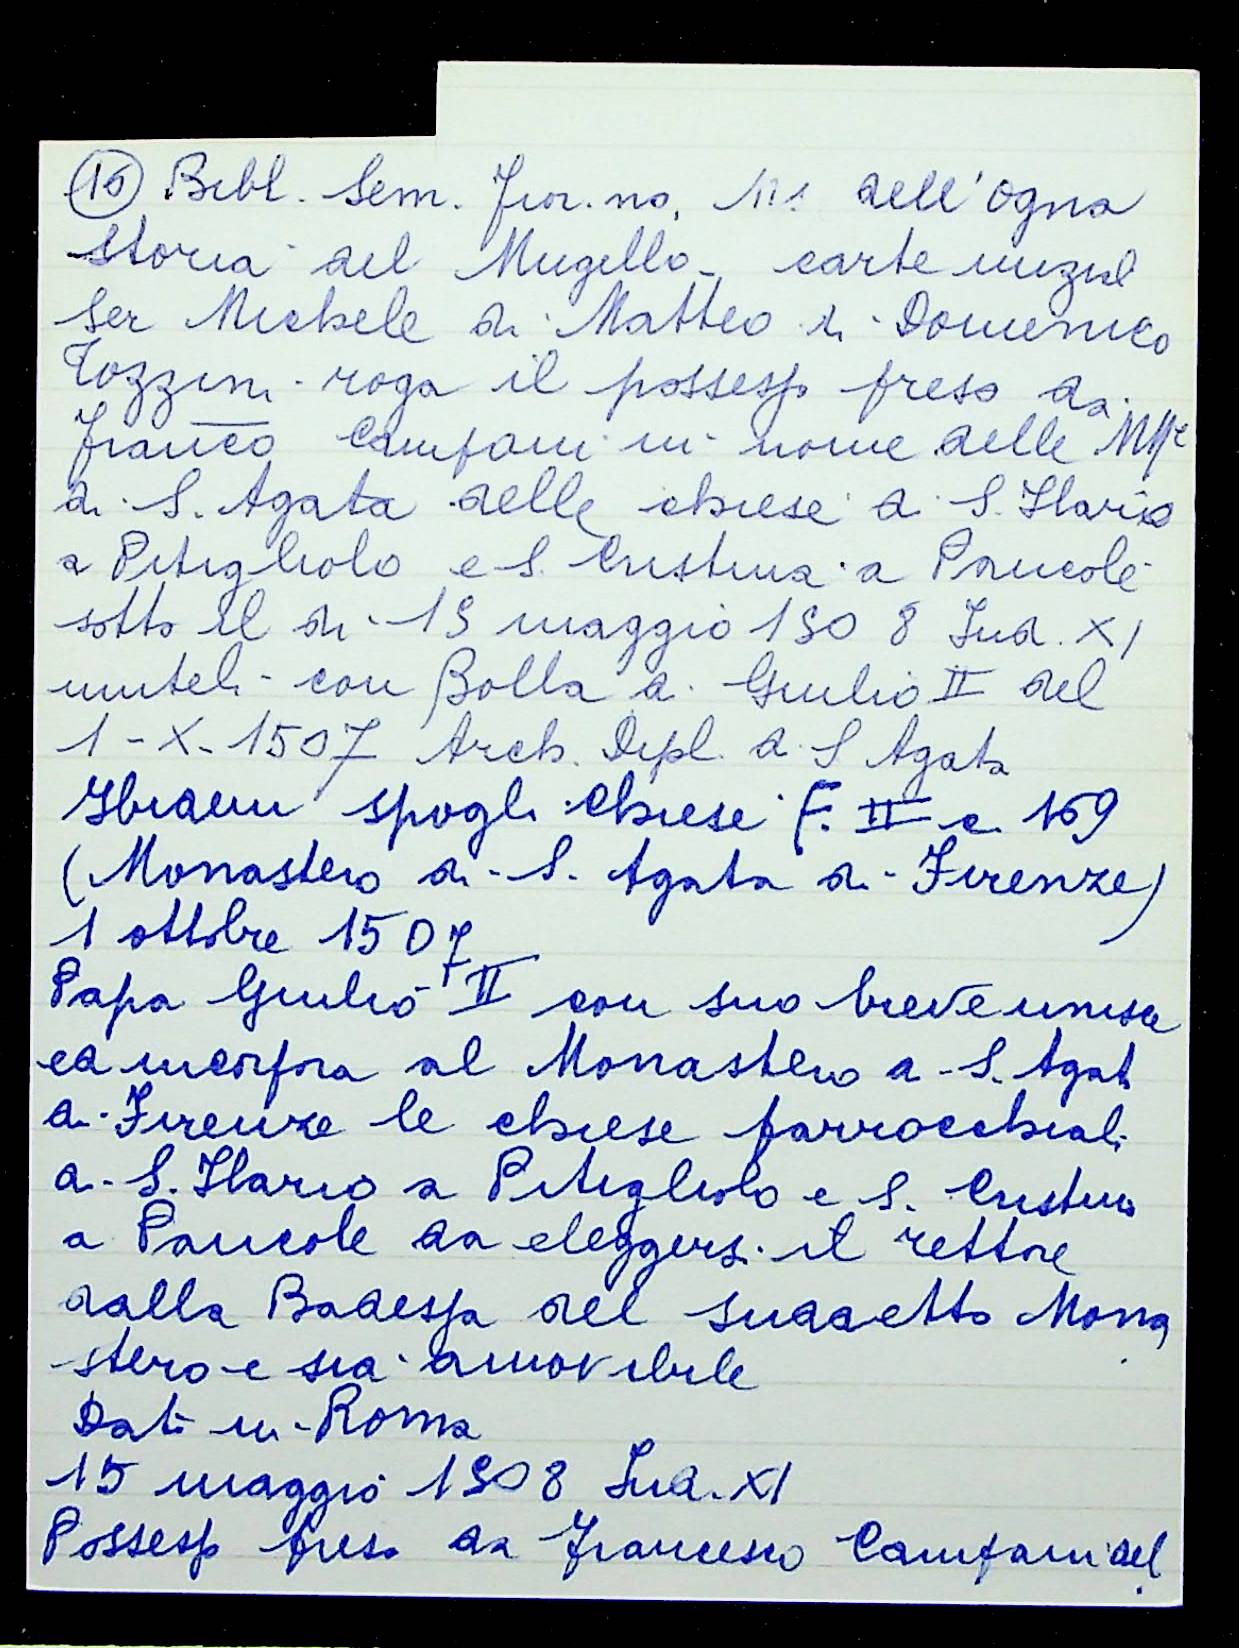 (16) Bibl. Sem. Fior.no, Ms dell'Ogna
Storia del Mugello - carte inizial
Ser Michele di Matteo di Domenico
Tozzini roga il possesso preso da
Franco Campani in nome delle MMe
di S. Agata delle chiese di S. Ilario
a Pitigliolo e S. Cristina a Pancole
sotto il di 15 maggio 1508 Ind. XI
uniteli con Bolla di Giulio II del
1-X-1507 Arch. Dipl. di S Agata
Ibidem spogli chiese F. II c. 169
(Monastero di S. Agata di Firenze)
1 ottobre 1507
Papa Giulio II con suo breve unisce
ed incorpora al Monastero di S. Agat
di Firenze le chiese parrocchiali
di S. Ilario a Pitigliolo e S. Cristina
a Pancole da eleggersi il rettore
dalla Badessa del suddetto Mona
stero e sia amovibile
Dati in Roma
15 maggio 1508 Ind. XI
Possesso preso da Francesco Campani del